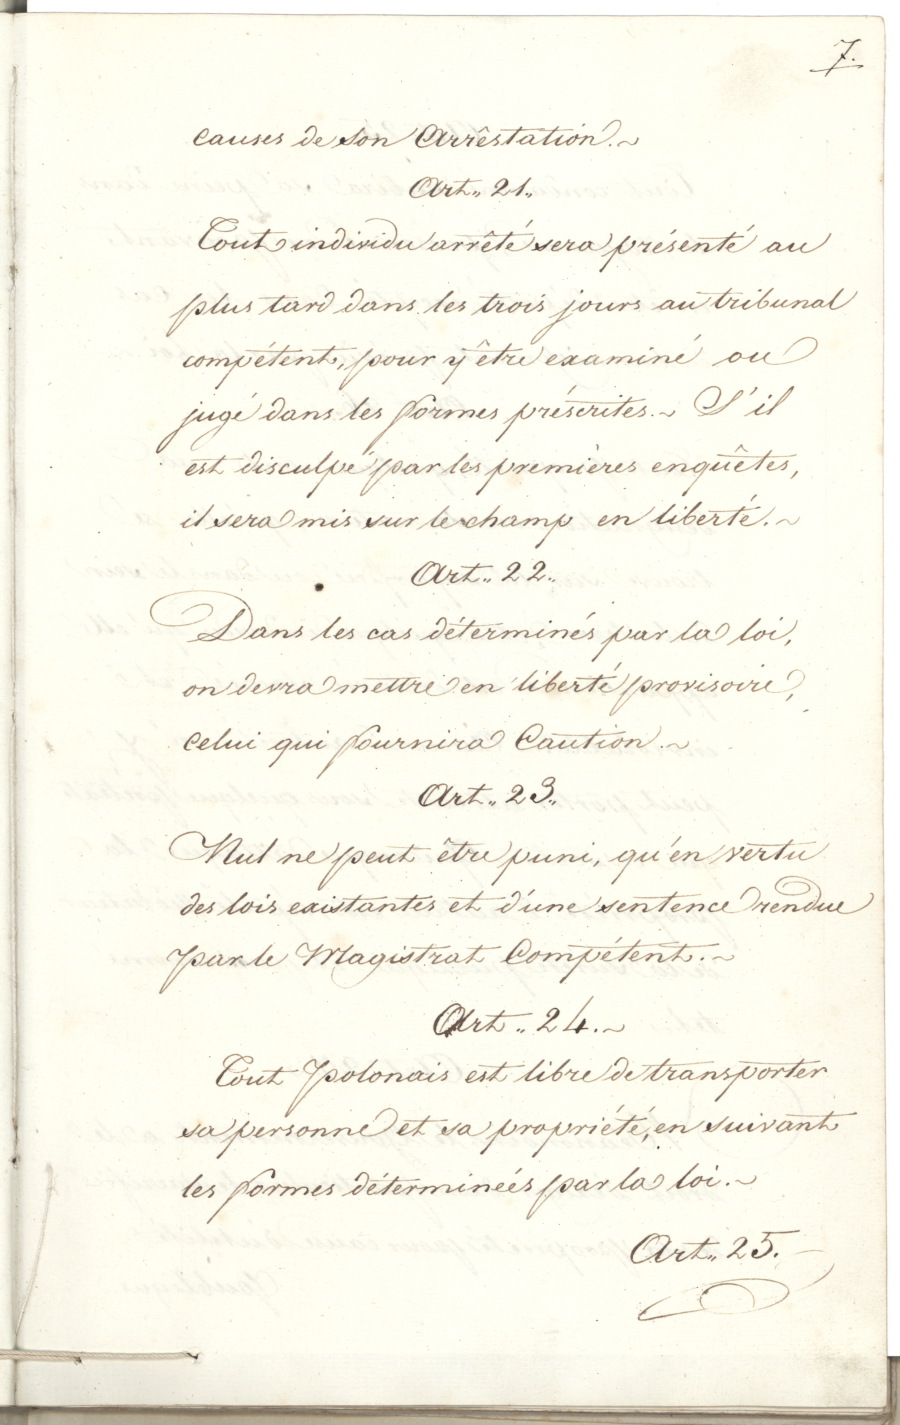 7.
causes de son Arrêstation.~
Art„ 21„
Tout individu arrêté sera présenté au
plus tard dans les trois jours au tribunal
compétent, pour y être examiné ou
jugé dans les formes préscrites.~ S'il
est disculpé par les premières enquêtes,
il sera mis sur le champ en liberté.~
Art„ 22„
Dans les cas déterminés par la loi,
on devra mettre en liberté provisoire,
celui qui fournira Caution.~
Art„ 23„
Nul ne peut être puni, qu'en vertu
des lois existantes et d'une sentence rendue
par le Magistrat Compétent.~
Art„ 24.~
Tout Polonais est libre de transporter
sa personne et sa propriété, en suivant
les formes détermineés par la loi.~
Art„ 25.